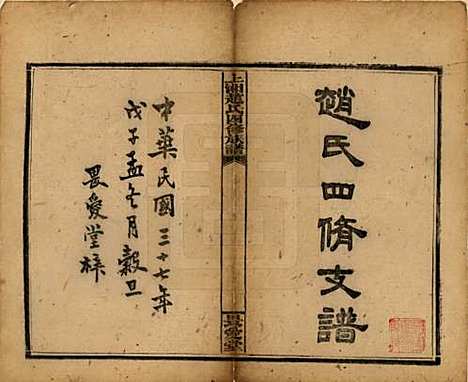 趙氏四脩支譜
上湘趙氏四修族譜
畏愛堂
中華民國三十七年
戊子孟冬月穀旦
畏愛堂梓